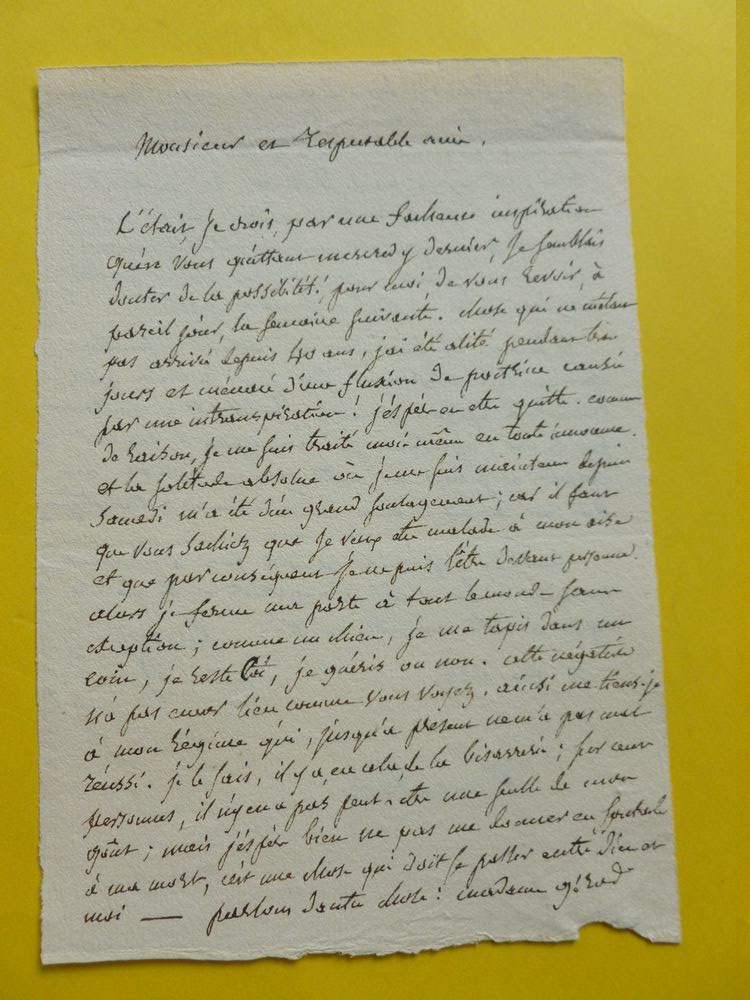 Monsieur et respectable ami.
C'était je crois, par une facheuse inspiration
qu'en vous quittant mercredy dernier, je semblais
douter de la possibilité, pour moi de vous revoir, à
pareil jour, la semaine suivante. chose qui ne m'etait
pas arrivée depuis 40 ans, j'ai été alité pendant trois
jours et ménacé d'une fluxion de poitrine causée
par une intranspiration! j'éspére en etre quitte. comme
de raison, je me suis traité moi-même en toute innocence.
et la solitude absolue où je me suis maintenu depuis
samedi m'a été d'un grand soulagement; car il faut
que vous sachiez que je veux etre malade à mon aise
et que par conséquent je ne puis l'être devant personne.
alors je ferme ma porte à tout le monde sans
exception; comme un chien, je me tapis dans un
coin, je reste coi, je guéris ou non. cette négative
n'a pas encor lieu comme vous voyez. ainsi me tiens-je
à mon régime qui, jusqu'a présent ne m'a pas mal
réussi. je le sais, il y a, en cela, de la bisarrerie; sur cent
personnes, il n'y en a pas peut-etre une seulle de mon
goût; mais j'éspére bien ne pas me donner en spectacle
à ma mort, c'est une chose qui doit se passer entre Dieu et
moi — parlons d'autre chose: madame gérod